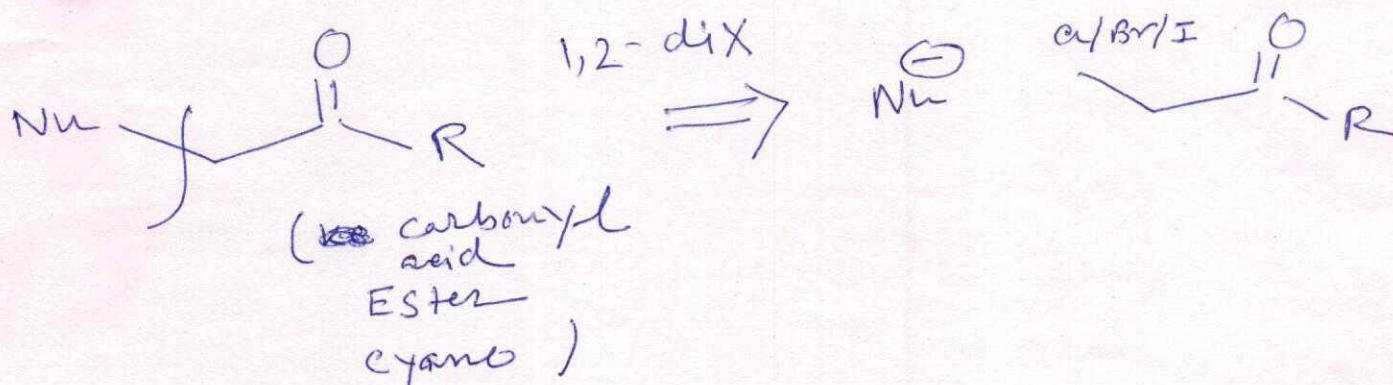 O
1,2-diX
⊖
Nu
Cl/Br/I
O
Nu
R
⇒
R
( carbonyl
acid
Ester
cyano )